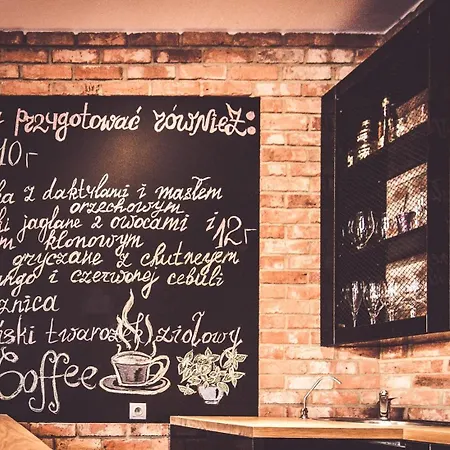 przygotować również:
10
z daktylami i masłem
orzechowym
jaglane z owocami i
klonowym
12
gryczane z chutneyem
ango i czerwonej cebuli
znica
ński twaróg ziołowy
Coffee